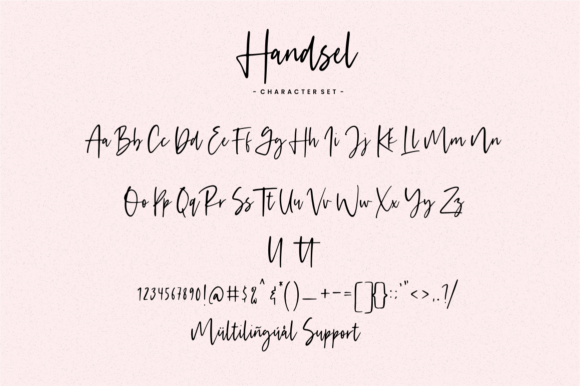 Handsel
- CHARACTER SET -
Aa Bb Cc Dd Ee Ff Gg Hh Ii Jj Kk Ll Mm Nn
Oo Pp Qq Rr Ss Tt Uu Vv Ww Xx Yy Zz
ll tt
1234567890!@#$%^&*()_+-=[]{}:;'"<>,.?/
Mültilïñgúàl Support